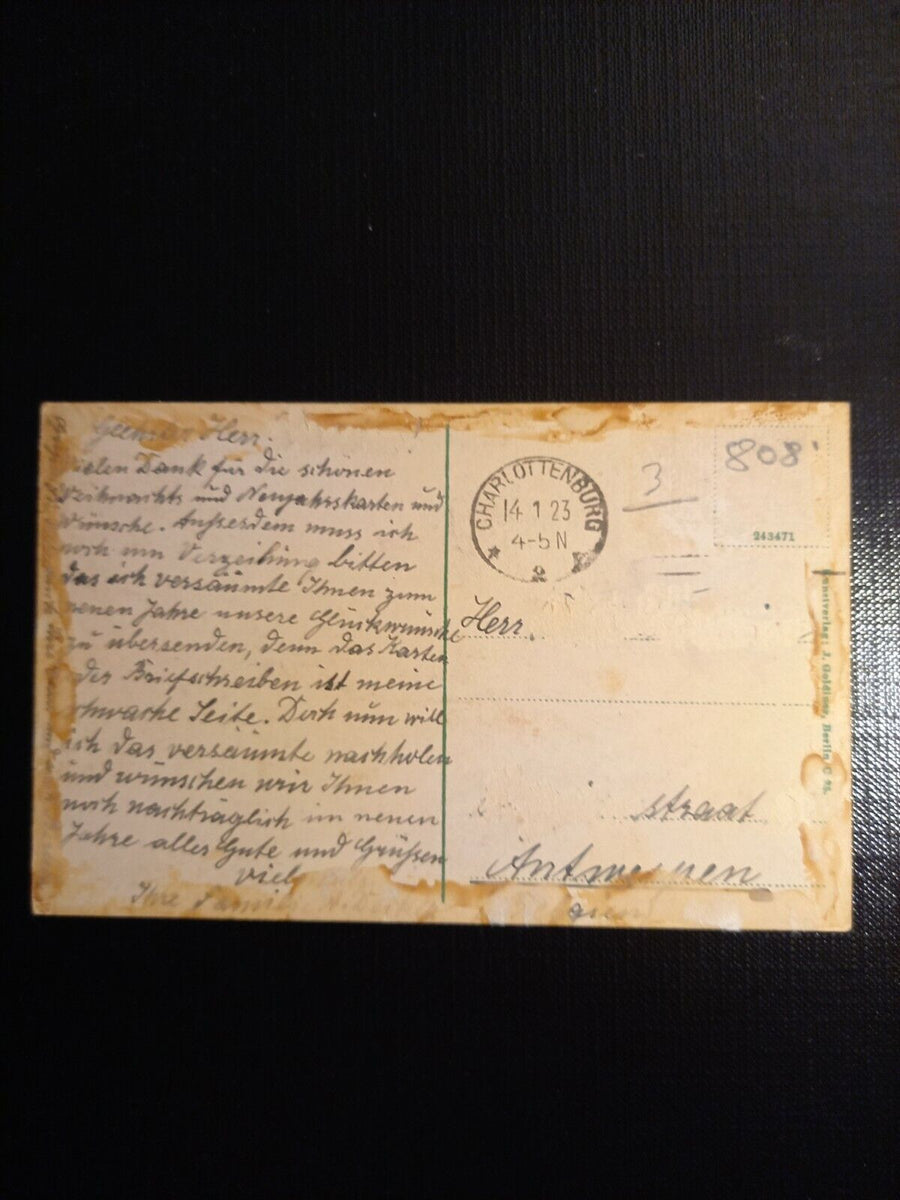 Herr.
vielen Dank für die schönen
Weihnachts und Neujahrskarten und
Wünsche. Ausserdem muss ich
noch um Verzeihung bitten
das ich versäumte Ihnen zum
neuen Jahre unsere Glückwünsche
zu übersenden, denn das Karten
oder Briefschreiben ist meine
schwache Seite. Doch nun will
ich das versäumte nachholen
und wünschen wir Ihnen
noch nachträglich im neuen
Jahre alles Gute und Grüssen
viel
Ihre Famil
CHARLOTTENBURG
14 1 23
4-5 N
2
3
808
243471
Herr.
straat
Antwerpen
Kunstverlag: J. Goldiner, Berlin C 25.